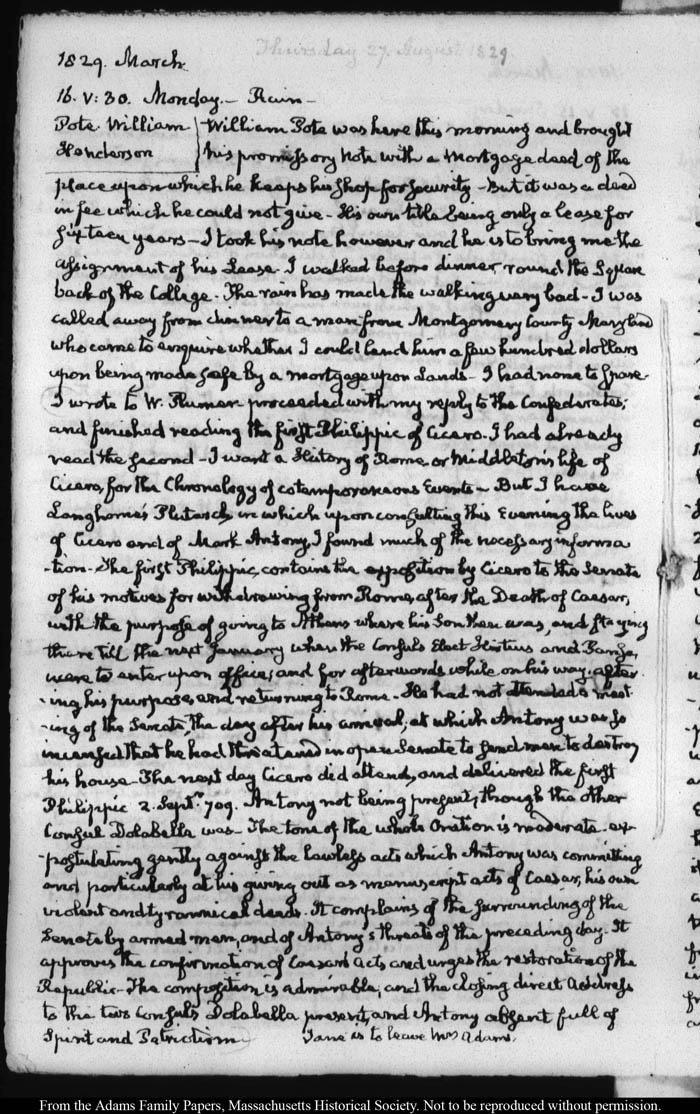 Thursday 27. August 1829
1829. March.
16. V:30. Monday.— Rain—
Pote William
Henderson
William Pote was here this morning and brought
his promissory Note with a Mortgage deed of the
place upon which he keeps his Shop for security— But it was a deed
in fee which he could not give— His own title being only a lease for
sixteen years— I took his note however and he is to bring me the
assignment of his Lease. I walked before dinner round the Square
back of the College. The rain has made the walking very bad— I was
called away from dinner to a man from Montgomery County Maryland
who came to enquire whether I could lend him a few hundred dollars
upon being made safe by a mortgage upon Lands— I had none to spare.
I wrote to W. proceeded with my reply to the Confederates;
and finished reading the first Philippic of Cicero. I had already
read the second— I want a History of Rome or Middleton's life of
Cicero, for the Chronology of cotemporaneous Events— But I have
Langhorne's Plutarch, in which upon consulting this Evening the lives
of Cicero and of Mark Antony, I found much of the necessary informa
-tion— The first Philippic, contains the exposition by Cicero to the Senate
of his motives for withdrawing from Rome, after the Death of Caesar,
with the purpose of going to Athens where his Son then was, and staying
there till the next January when the Consuls Elect Hirtius and Pansa,
were to enter upon office; and for afterwards while on his way, alter
-ing his purpose, and returning to Rome— He had not attended a meet
-ing of the Senate, the day after his arrival, at which Antony was so
incensed that he had threatened in open Senate to send men to destroy
his house— The next day Cicero did attend, and delivered the first
Philippic 2. Septr. 709. Antony not being present, though the other
Consul Dolabella was— The tone of the whole Oration is moderate. ex-
-postulating gently against the lawless acts which Antony was committing
and particularly at his giving out as manuscript acts of Caesar, his own
violent and tyrannical deeds. It complains of the surrounding of the
Senate by armed men, and of Antony's threats of the preceding day. It
approves the confirmation of Caesar's acts and urges the restoration of the
Republic— The composition is admirable; and the closing direct Address
to the two Consuls Dolabella present, and Antony absent full of
Spirit and Patriotism—
Jane is to leave Mrs Adams.
From the Adams Family Papers, Massachusetts Historical Society. Not to be reproduced without permission.